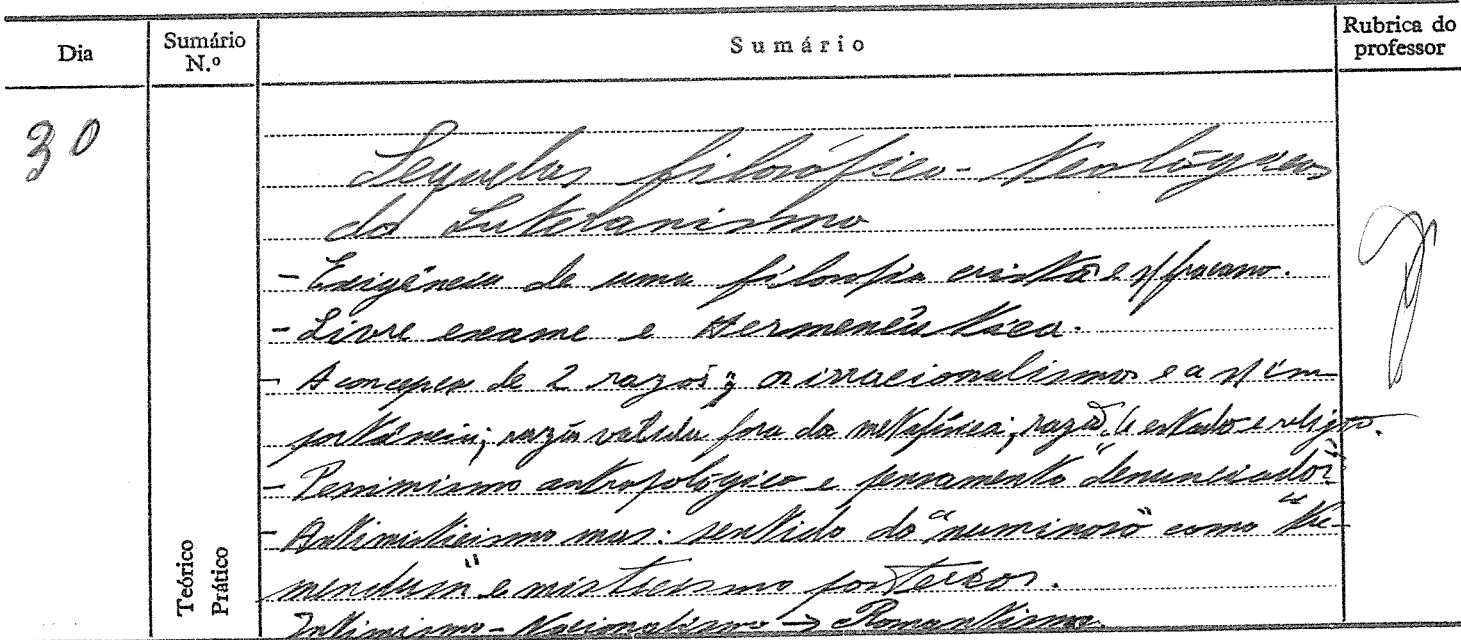 Dia
Sumário N.º
Sumário
Rubrica do professor
30
Sequelas filosófico-teológicas
do Luteranismo
- Exigência de uma filosofia cristã e s/ fracasso.
- Livre exame e Hermenêutica.
- A concepção de 2 razões; o irracionalismo e a s/ im-
portância; razão válida fora da metafísica; razão de estado e religião.
- Pessimismo antropológico e pensamento "denunciador"
- Antimisticismo mas: sentido do "numinoso" como "tre-
mendum" e misticismo posterior.
Intimismo - Nacionalismo -> Romantismo.
Teórico
Prático